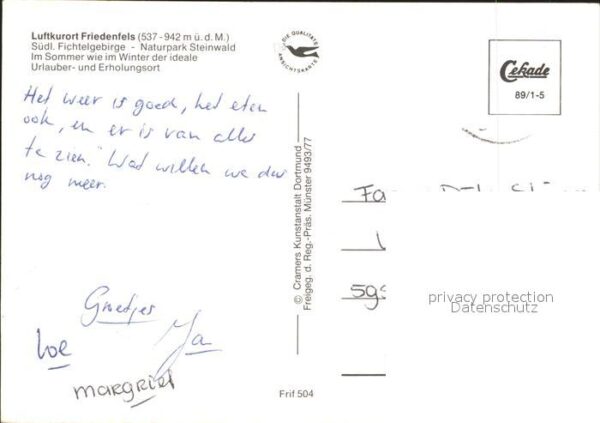 Luftkurort Friedenfels (537-942 m ü. d. M.)
Südl. Fichtelgebirge - Naturpark Steinwald
Im Sommer wie im Winter der ideale
Urlauber- und Erholungsort
DIE QUALITÄTS
ANSICHTSKARTE
Cekade
89/1-5
Het weer is goed, het eten
ook, en er is van alles
te zien. Wat willen we dan
nog meer.
Groetjes
Ja
Loe
margriet
© Cramers Kunstanstalt Dortmund
Freigeg. d. Reg.-Präs. Münster 9493/77
Fa
privacy protection
Datenschutz
Frif 504